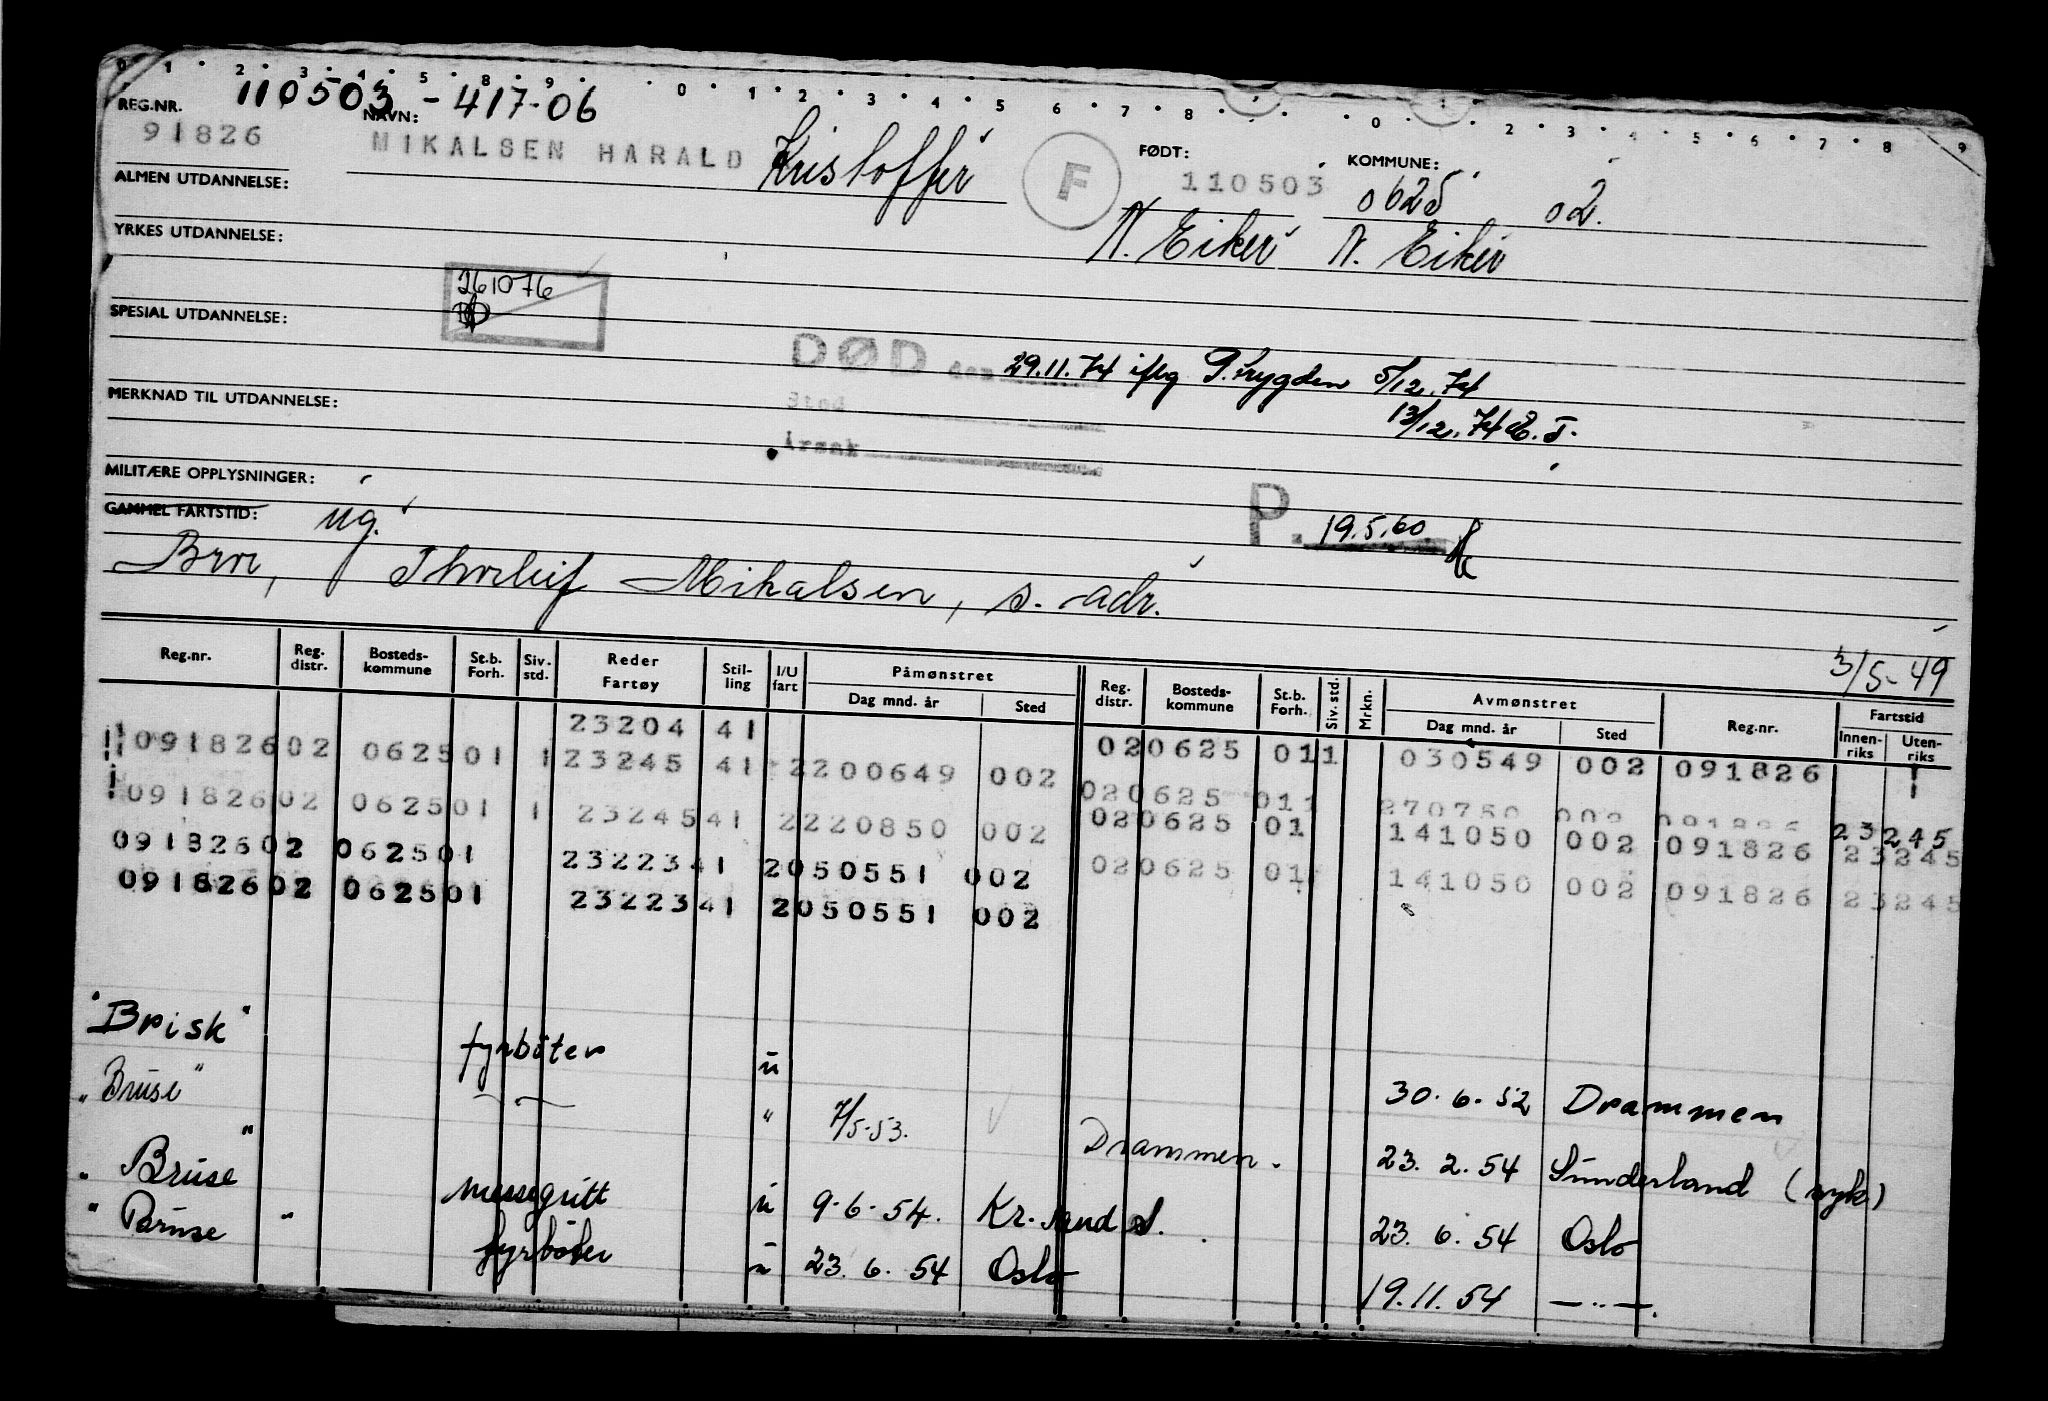 0 1 2 3 4 5 8 9 0 1 2 3 4 5 6 7 8 0 2 3 4 5 6 7 8 9
REG.NR. 110503 - 417-06
NAVN:
91826 MIKALSEN HARALD Kristoffer F FØDT: 110503 KOMMUNE: 0625 02.
ALMEN UTDANNELSE:
N. Eiker N. Eiker
YRKES UTDANNELSE:
261076
SPESIAL UTDANNELSE:
DØD den 29.11.74 iflg P.trygden 5/12.74
Sted 13/12.74
MERKNAD TIL UTDANNELSE:
Årsak
MILITÆRE OPPLYSNINGER:
P. 19.5.60
GAMMEL FARTSTID: ug.
Bror, Thorleif Mikalsen, s. adr.
3/5-49
Reg.nr. Reg. distr. Bosteds-kommune St.b. Forh. Siv. std. Reder Fartøy Stil-ling I/U fart Påmønstret Dag mnd. år Sted Reg. distr. Bosteds-kommune St.b. Forh. Siv. std. Mrkn. Avmønstret Dag mnd. år Sted Reg.nr. Fartstid Innen-riks Uten-riks
23204 41 020625 011 030549 002 091826
09182602 062501 1 23245 41 2200649 002 020625 011 270750 002 091826 23245
09182602 062501 1 23245 41 2220850 002 020625 01 141050 002 091826 23245
09182602 062501 23223 41 2050551 002 020625 01 141050 002 091826 23245
09182602 062501 23223 41 2050551 002
"Brisk" fyrbøter u 30.6.52 Drammen
"Bruse" — " — " 7/5-53. Drammen. 23.2.54 Sunderland (syk)
"Bruse" messegutt u 9.6.54. Kr.sand S. 23.6.54 Oslo
"Bruse" fyrbøter u 23.6.54 Oslo 19.11.54 —"—.